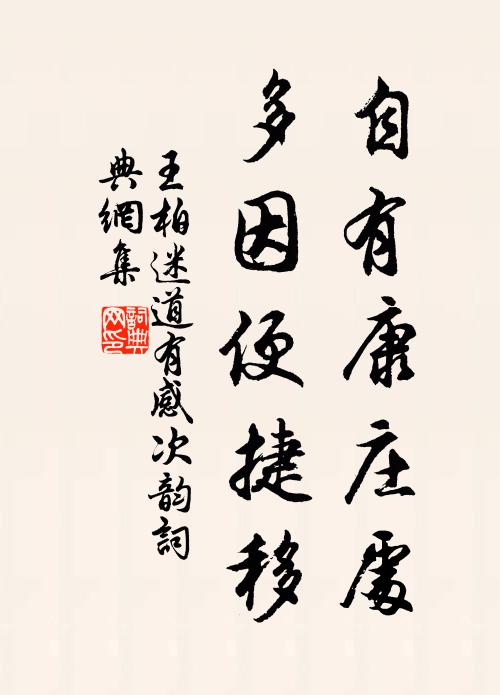 自有康庄處
多因便捷移
王柏迷道有感次韵詞
典網集
詞典
网印